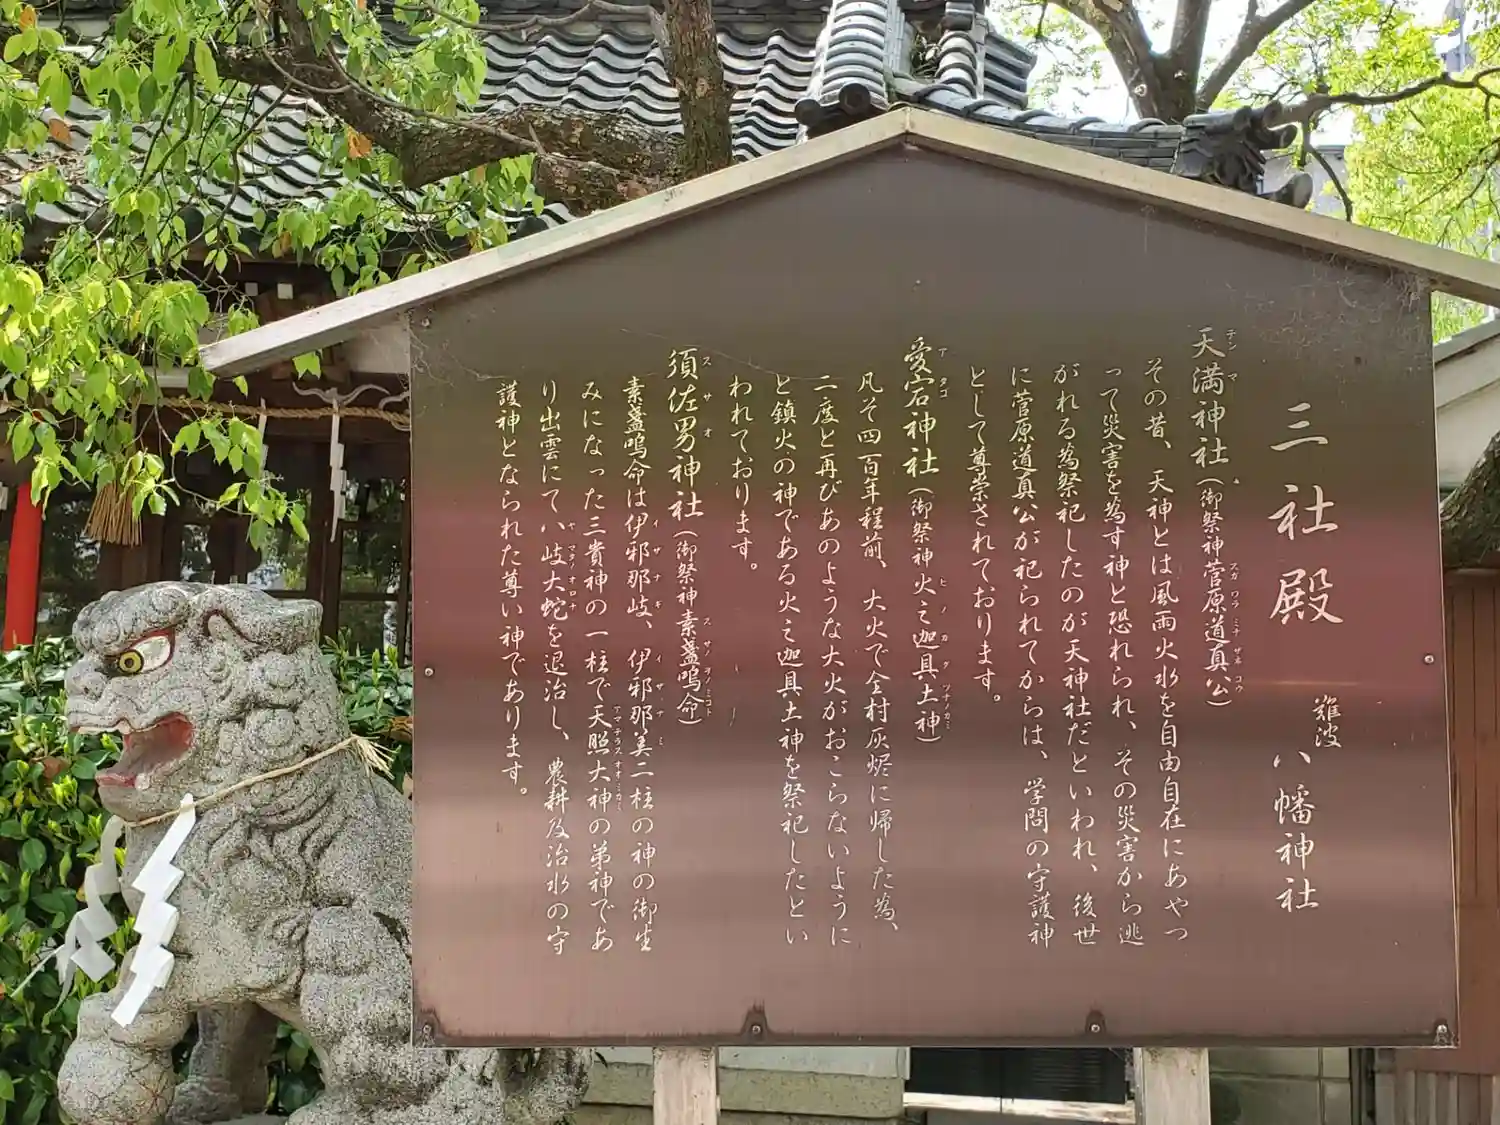 三社殿
難波
八幡神社
天満神社(御祭神菅原道真公)
その昔、天神とは風雨火水を自由自在にあやつ
って災害を為す神と恐れられ、その災害から逃
がれる為祭祀したのが天神社だといわれ、後世
に菅原道真公が祀られてからは、学問の守護神
として尊崇されております。
愛宕神社(御祭神火之迦具土神)
凡そ四百年程前、大火で全村灰燼に帰した為、
二度と再びあのような大火がおこらないように
と鎮火の神である火之迦具土神を祭祀したとい
われております。
須佐男神社(御祭神素盞嗚命)
素盞嗚命は伊邪那岐、伊邪那美二柱の神の御生
みになった三貴神の一柱で天照大神の弟神であ
り出雲にて八岐大蛇を退治し、農耕及治水の守
護神となられた尊い神であります。